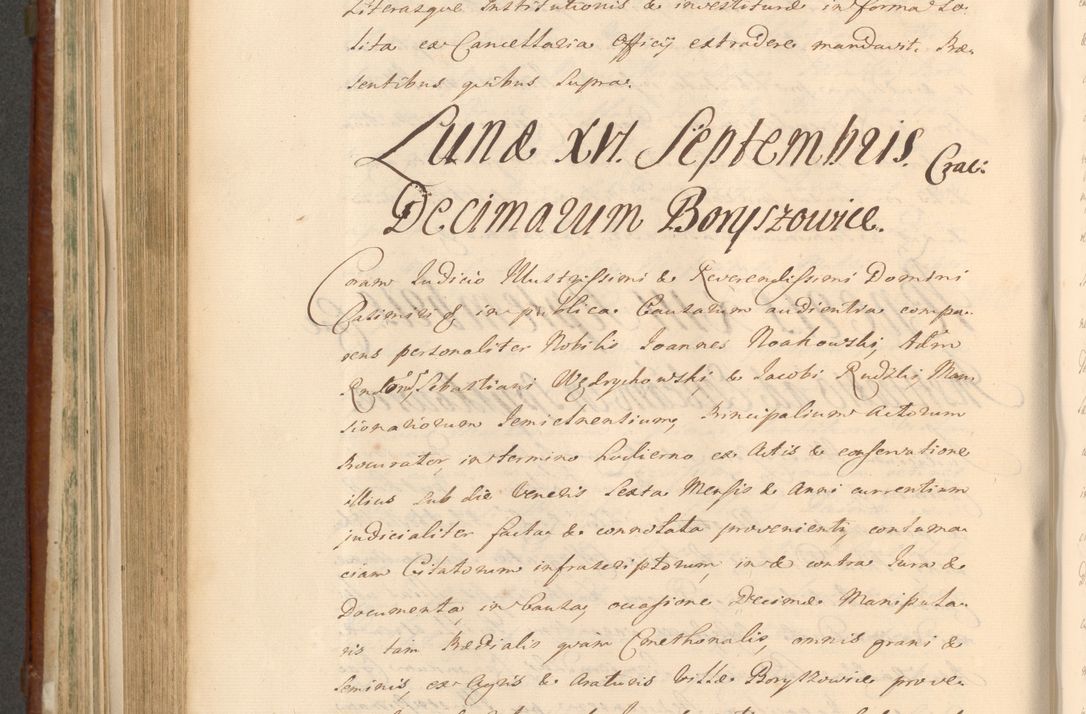 Literasque Institutionis & investituræ in forma So-
lita ex Cancellaria Officij extradere mandavit. Præ-
sentibus quibus Supra.
Lunæ XVI. Septembris. Crac:
Decimarum Boryszowice.
Coram Judicio Illustrissimi & Reverendissimi Domini
Casimiri & in publica Causarum audientia compa-
rens personaliter Nobilis Joannes Noakowski, Adm
Rndorum Sebastiani Wędrychowski, & Jacobi Rudzki Man
sionariorum Principalium Actorum
Procurator, in termino hodierno ex Actis & conservatione
illius sub die Veneris Sexta Mensis & Anni currentium
judicialiter facta & connotata provenienti, contuma-
ciam Citatorum infrascriptorum, in & contra Jura &
Documenta, in Causa, occasione Decimæ Manipula-
ris tam Prædialis quàm Cmethonalis, omnis grani &
Seminis, ex Agris & Araturis Villæ Boryszowice prove-